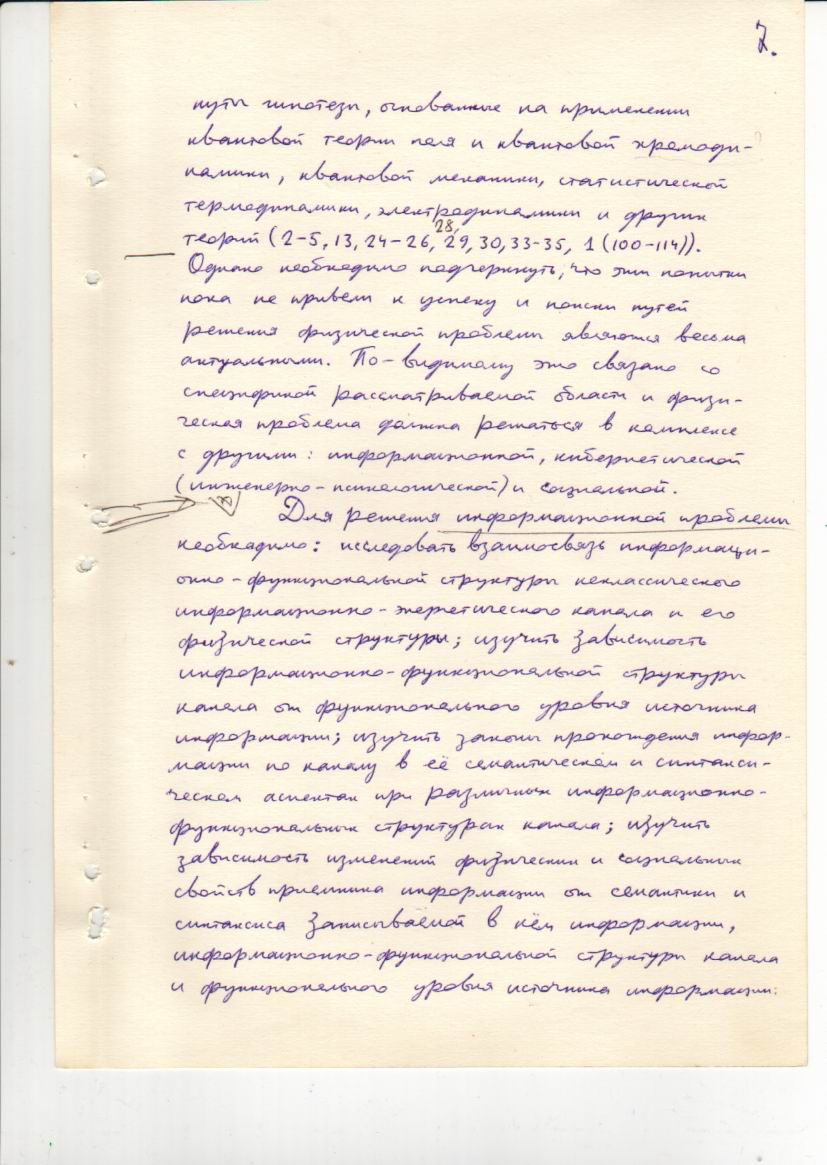 7.
нуты гипотезы, основанные на применении
квантовой теории поля и квантовой хромоди-
намики, квантовой механики, статистической
термодинамики, электродинамики и других
28,
теорий (2-5, 13, 24-26, 29, 30, 33-35, 1 (100-114)).
Однако необходимо подчеркнуть, что эти попытки
пока не привели к успеху и поиски путей
решения физической проблемы являются весьма
актуальными. По-видимому это связано со
спецификой рассматриваемой области и физи-
ческая проблема должна решаться в комплексе
с другими: информационной, кибернетической
(инженерно-психологической) и социальной.
Для решения информационной проблемы
необходимо: исследовать взаимосвязь информаци-
онно-функциональной структуры неклассического
информационно-энергетического канала и его
физической структуры; изучить зависимость
информационно-функциональной структуры
канала от функционального уровня источника
информации; изучить законы прохождения инфор-
мации по каналу в её семантическом и синтакси-
ческом аспектах при различных информационно-
функциональных структурах канала; изучить
зависимость изменений физических и социальных
свойств приемника информации от семантики и
синтаксиса записываемой в нём информации,
информационно-функциональной структуры канала
и функционального уровня источника информации.